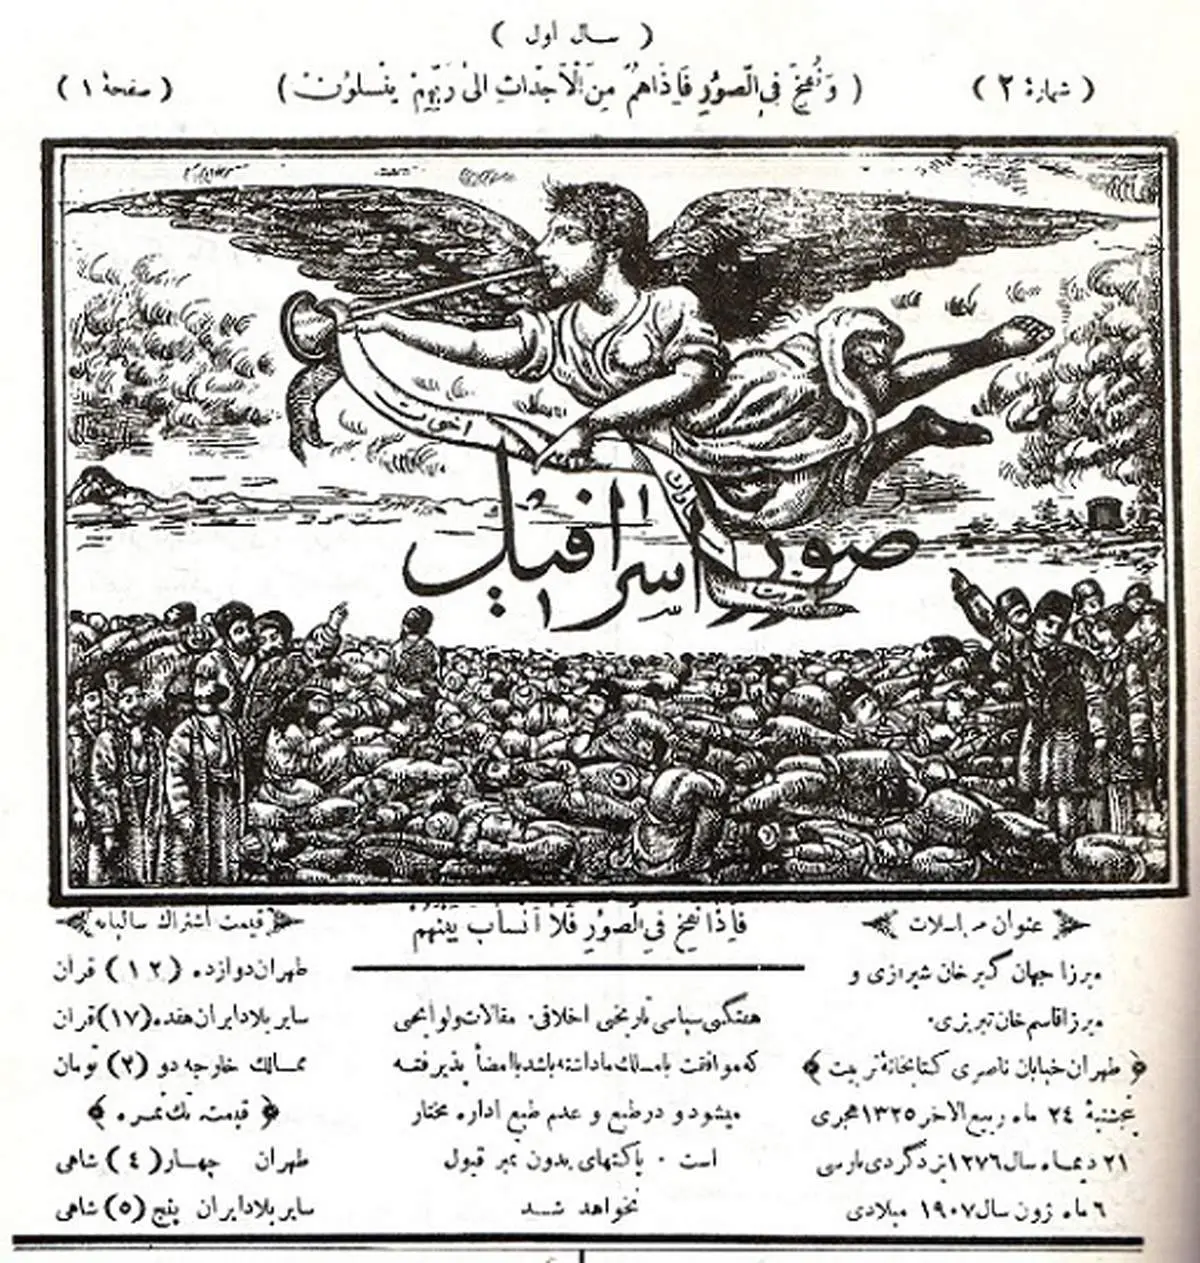 ( سال اول )
( شماره ۲ )
( وَنُفِخَ فِی الصُّورِ فَاِذَاهُمْ مِنَ الْاَجْدَاثِ اِلیٰ رَبِّهِمْ یَنْسِلُونَ )
( صفحهٔ ۱ )
اخوت
مساوات
حریت
صور اسرافیل
فَاِذَا نُفِخَ فِی الصُّورِ فَلاٰ اَنْسٰابَ بَیْنَهُمْ
عنوان مراسلات
میرزا جهان گیر خان شیرازی و
میرزا قاسم خان تبریزی.
﴿ طهران خیابان ناصری کتابخانهٔ تربیت ﴾
پنجشنبهٔ ۲۴ ماه ربیع الاخر ۱۳۲۵ هجری
۲۱ دیماه سال ۱۲۷۶ یزدگردی پارسی
۶ ماه ژون سال ۱۹۰۷ میلادی
هفتگی سیاسی تاریخی اخلاقی. مقالات و لوایحی
که موافقت با مسلك ما داشته باشد با امضأ پذیرفته
میشود و در طبع و عدم طبع اداره مختار
است . پاکتهای بدون تمبر قبول
نخواهد شد
قیمت اشتراك سالیانه
طهران دوازده (۱۲) قران
سایر بلاد ایران هفده (۱۷) قران
ممالك خارجه دو (۲) تومان
﴿ قیمت تك نمره ﴾
طهران چهار (۴) شاهی
سایر بلاد ایران پنج (۵) شاهی